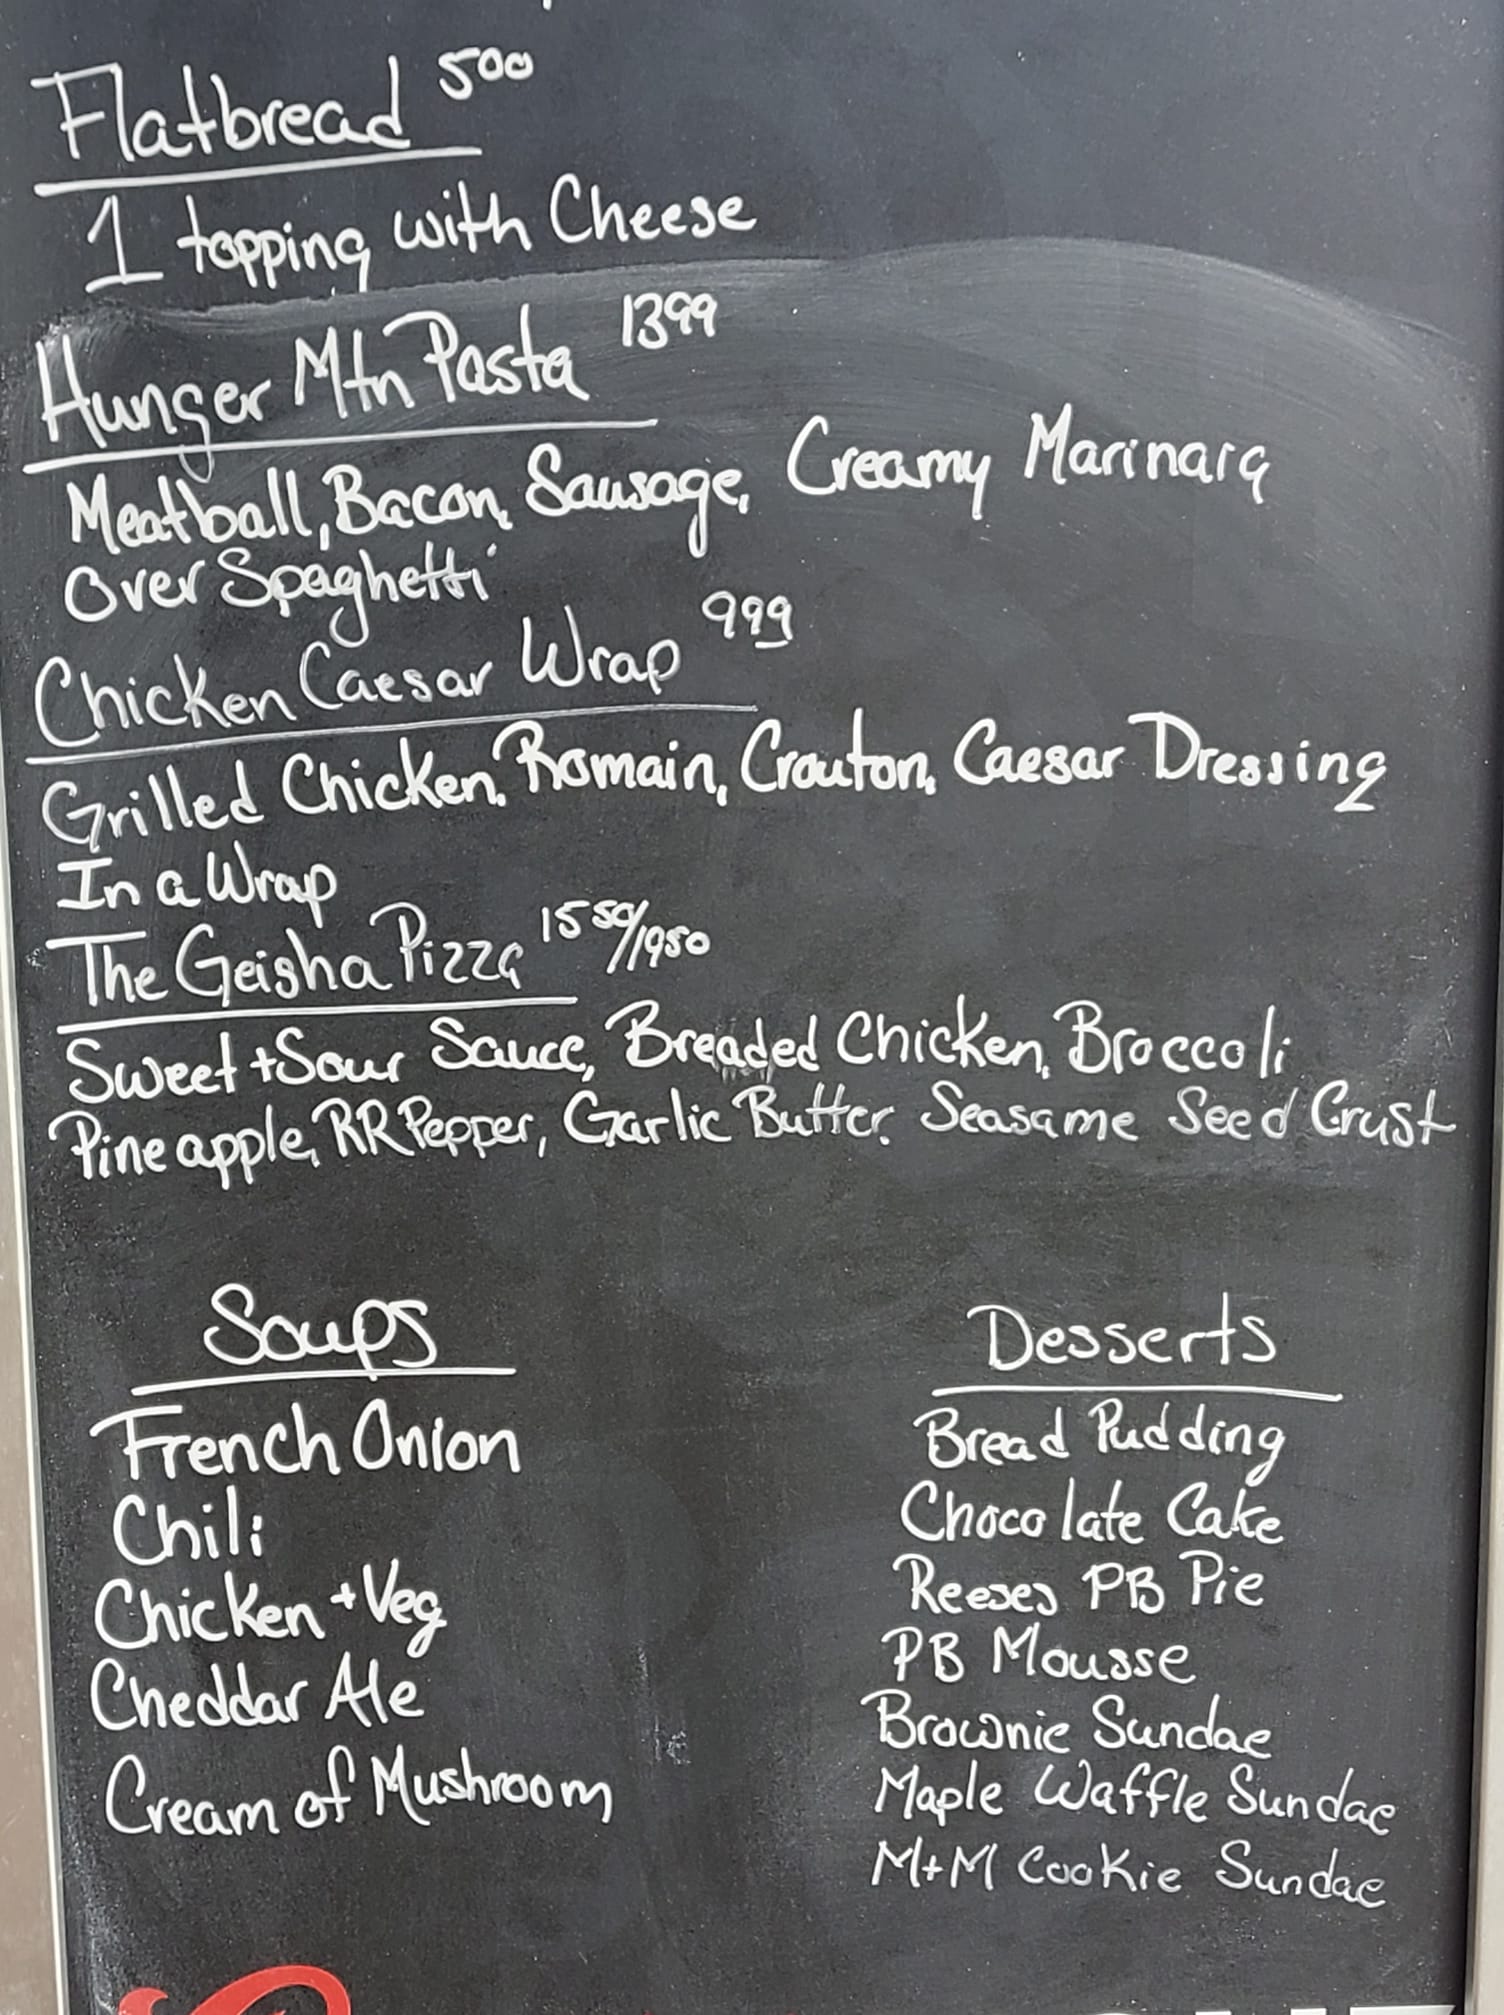 Flatbread 500
1 topping with Cheese
Hunger Mtn Pasta 1399
Meatball, Bacon, Sausage, Creamy Marinara
Over Spaghetti
Chicken Caesar Wrap 999
Grilled Chicken, Romain, Crouton, Caesar Dressing
In a Wrap
The Geisha Pizza 1550/1950
Sweet + Sour Sauce, Breaded Chicken, Broccoli
Pineapple, RR Pepper, Garlic Butter, Seasame Seed Crust
Soups
French Onion
Chili
Chicken + Veg
Cheddar Ale
Cream of Mushroom
Desserts
Bread Pudding
Chocolate Cake
Reeses PB Pie
PB Mousse
Brownie Sundae
Maple Waffle Sundae
M+M Cookie Sundae